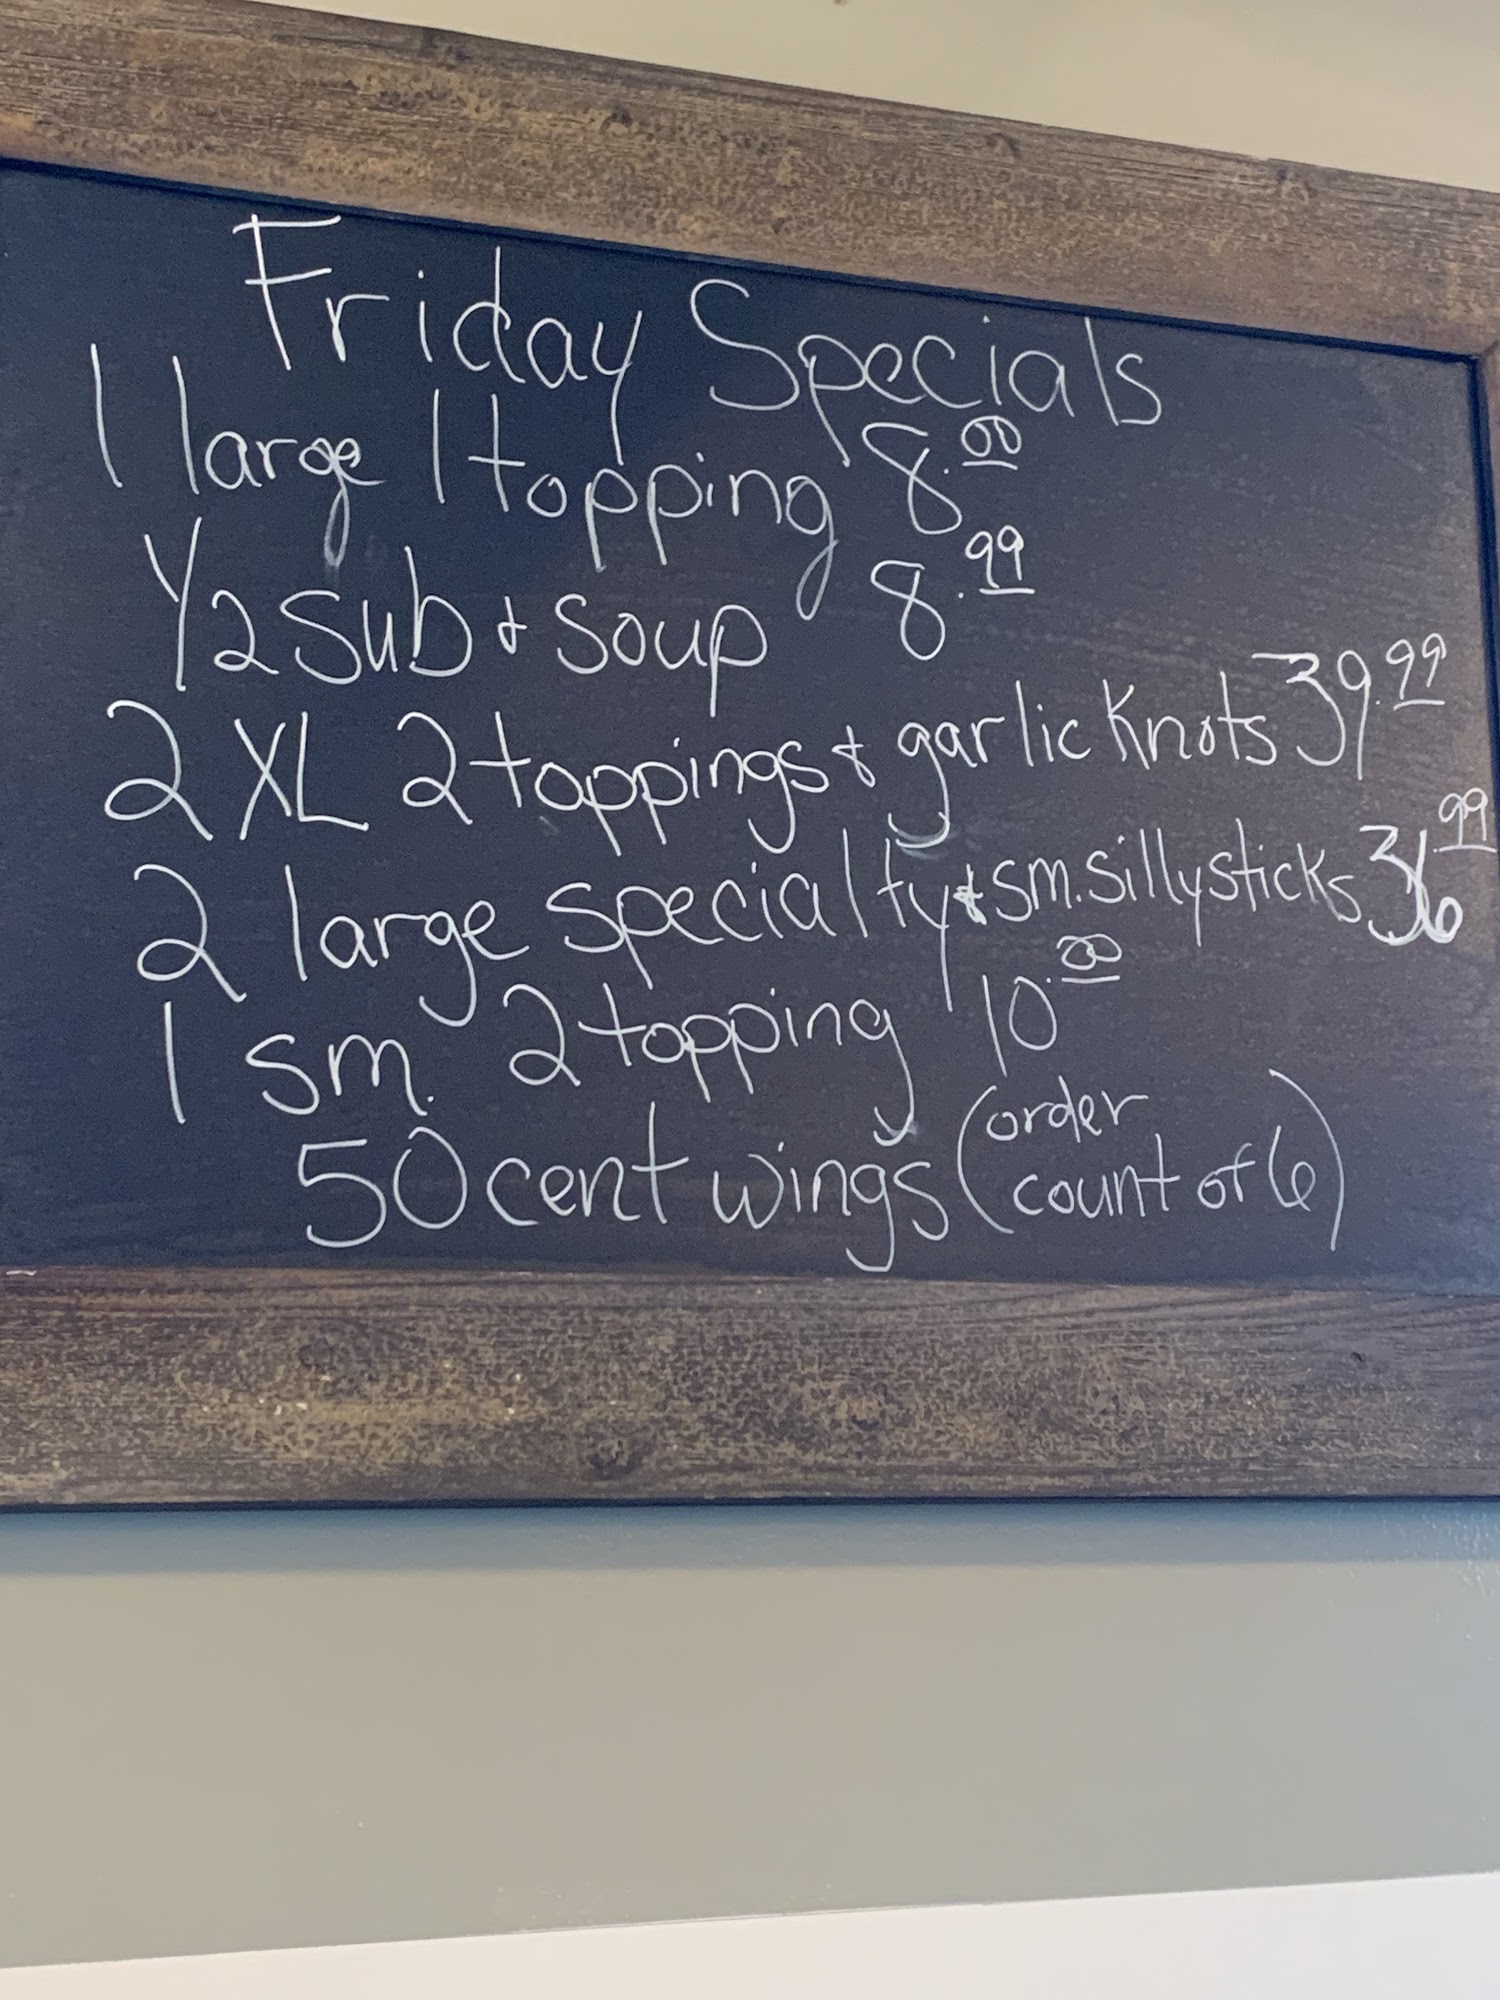 Friday Specials
1 large 1 topping 8.00
1/2 sub & soup 8.99
2 XL 2 toppings & garlic knots 39.99
2 large specialty & sm. sillysticks 36.99
1 sm. 2 topping 10.00
50 cent wings (order count of 6)